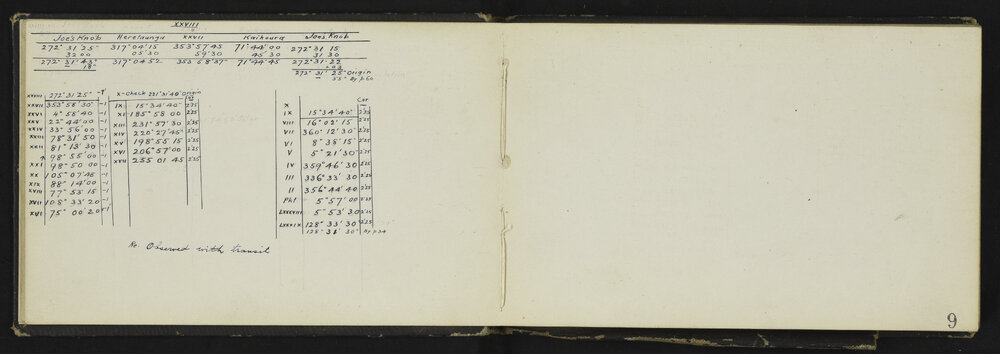 XXVIII
Joe's Knob Heretaunga XXVII Kaikoura Joe's Knob
272° 31' 25" 317° 04' 15 353° 57' 45 71° 44' 00 272° 31 15
32 00 05' 30 59' 30 45' 30 31' 30
272° 31' 43" 317° 04 52 353 58' 37" 71° 44' 45 272° 31' 22
18"
272° 31' 25" Origin
55" By p 60
XXVIII 272° 31' 25" -1"
XXVII 353° 58' 30" -1
XXVI 4° 55' 40 -1
XXV 22° 44' 00 -1
XXIV 33° 56' 00 -1
XXIII 78° 31' 50 -1
XXII 81° 13' 30 -1
98° 55' 00 -1
XXI 98° 50 00 -1
XX 105° 07' 45 -1
XIX 88° 14' 00 -1
XVIII 77° 53' 15 -1
XVII 108° 33' 20 -1
XVI 75° 00' 20
X-Check 221° 31' 40" Origin
IX 15° 34' 40" 2.25
XI 185° 58' 00 2.25
XIII 231° 57' 30 2.25
XIV 220° 27' 45" 2.25
XV 198° 55 15 2.25
XVI 206° 57' 00 2.25
XVII 255 01 45 2.25
Cor
X
IX 15° 34' 40" 2.25
VIII 16° 02' 15 2.25
VII 360° 12' 30" 2.25
VI 8° 35' 15 2.25
V 5° 21' 30" 2.25
IV 359° 46' 30 2.25
III 336° 33' 30 2.25
II 356° 44' 40 2.25
PhI 5° 57' 00 2.25
LXXXVIII 5° 53' 30 2.25
LXXXIX 128° 33' 30 2.25
128° 31' 30" By p 34
Ro. Observed with transit
9